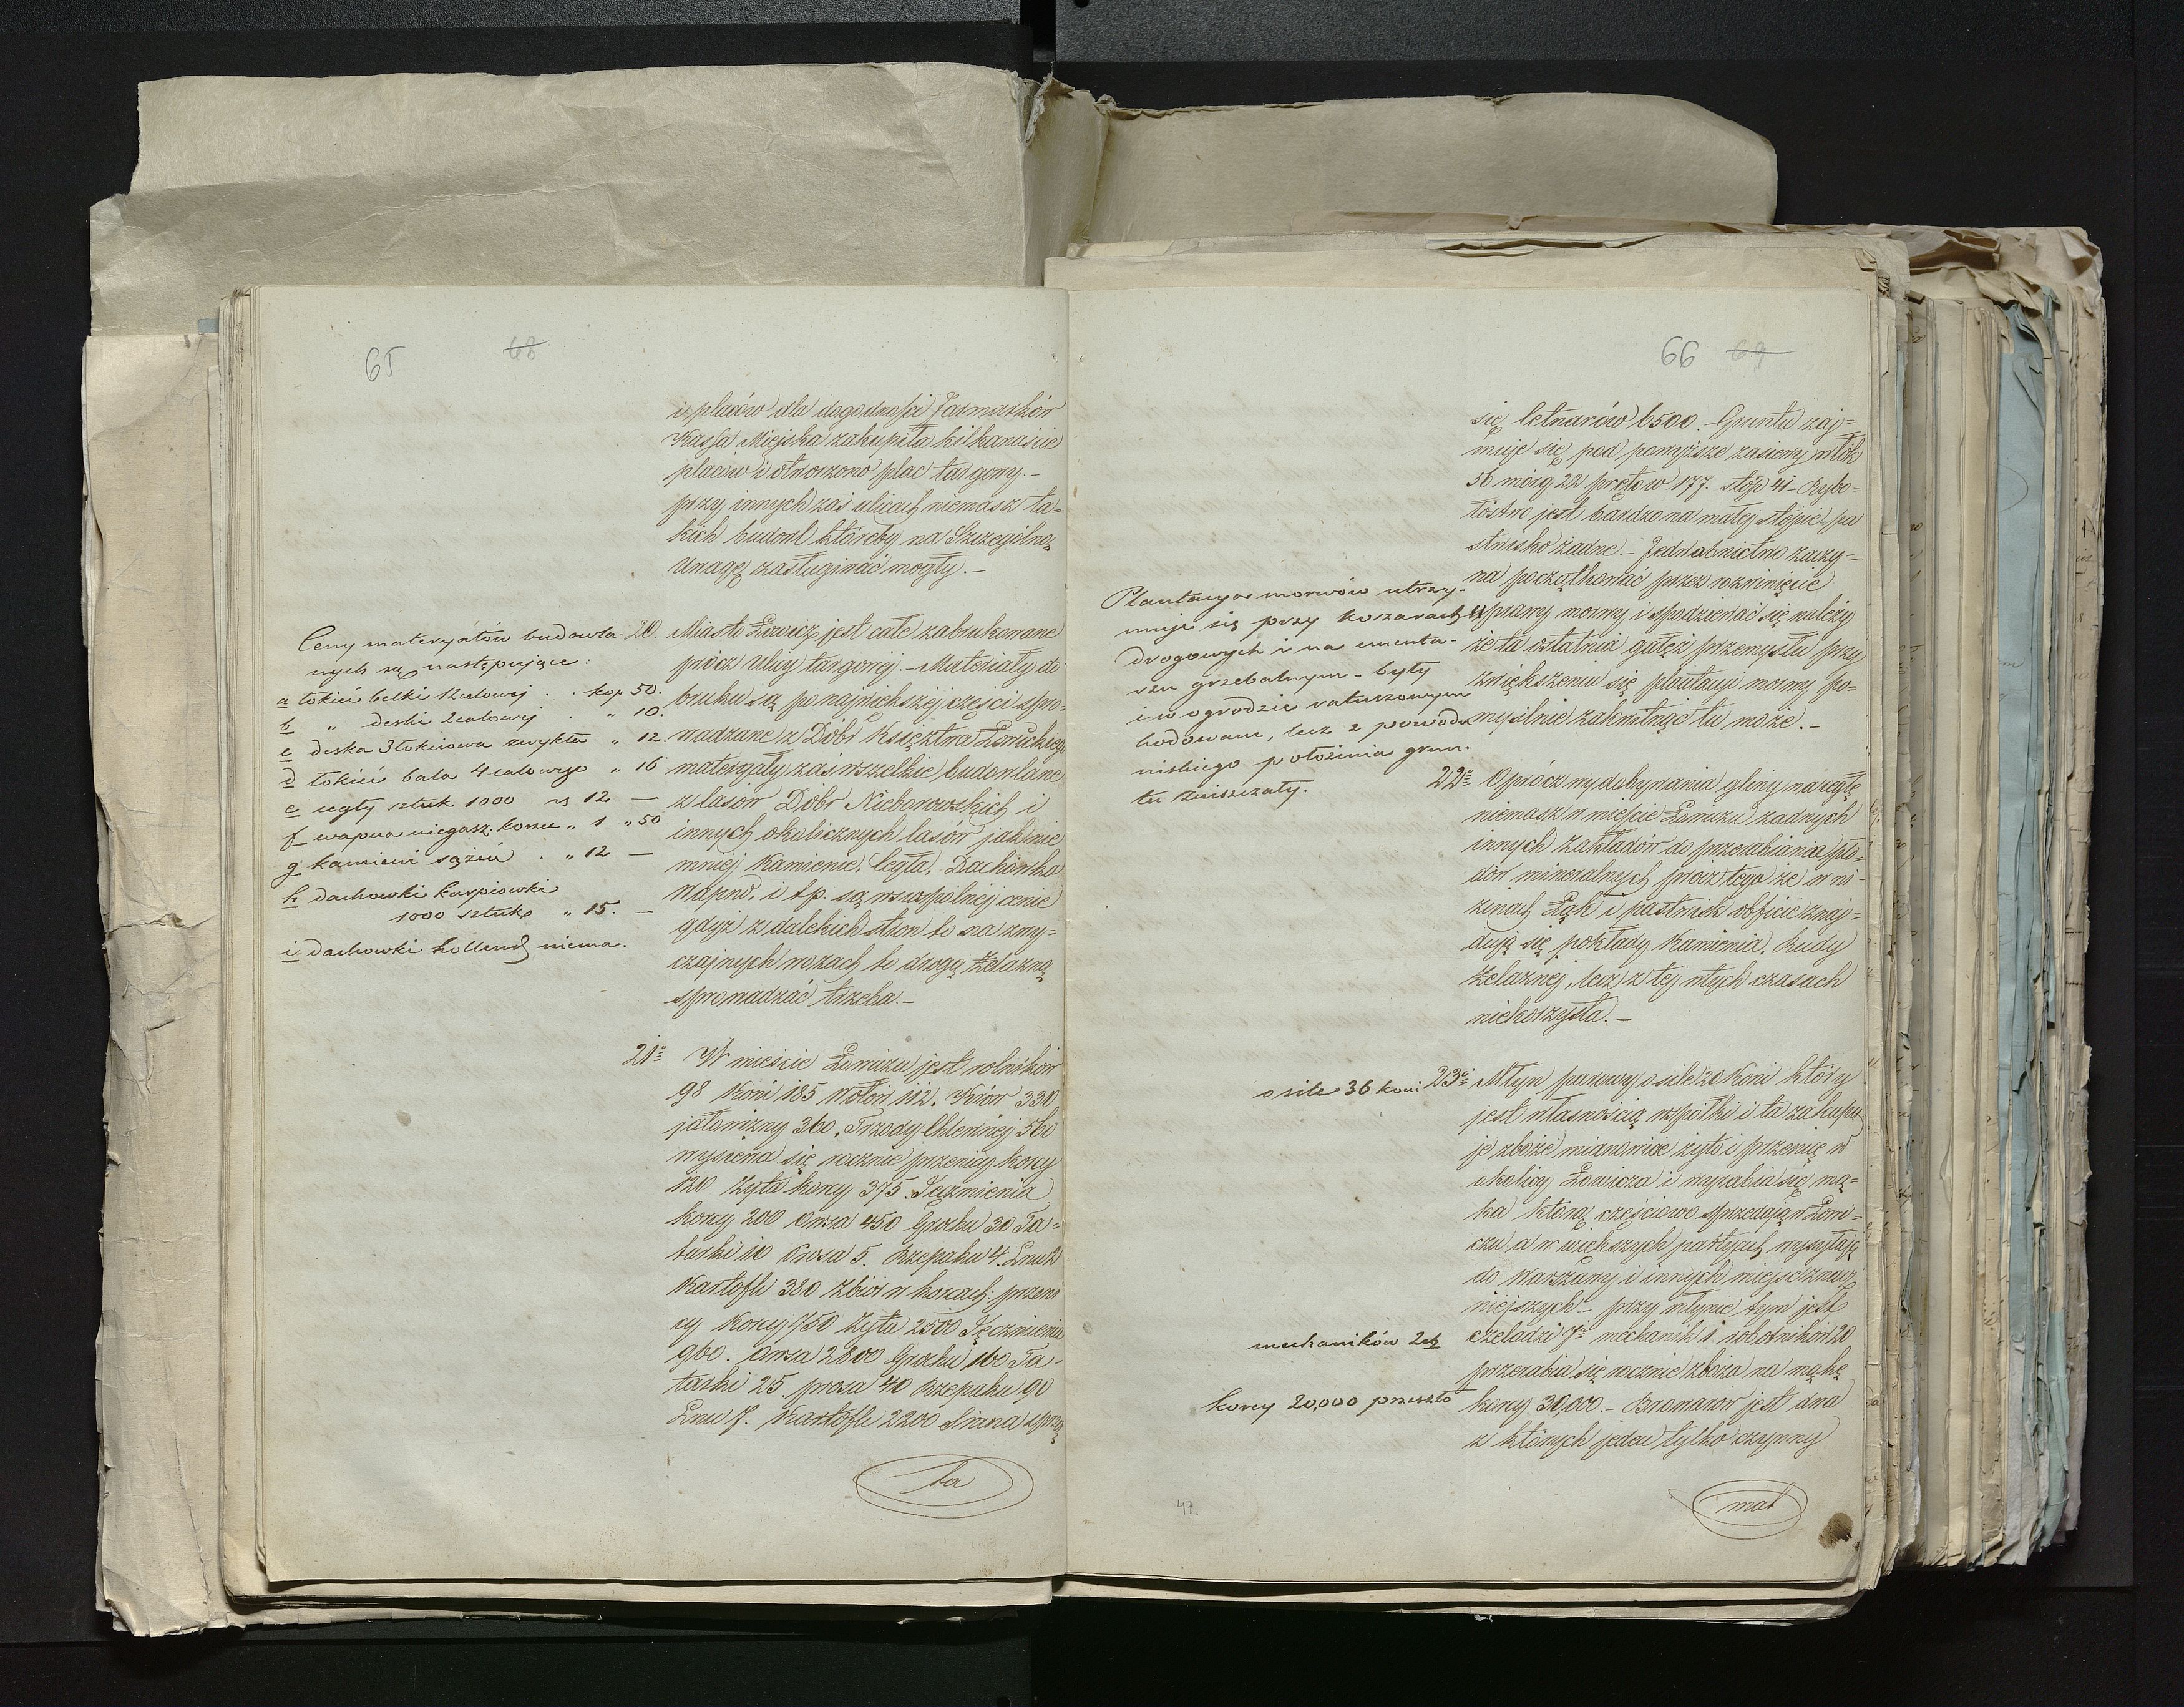 65 68
i placów dla dogodności Jarmarków
Kassa Miejska zakupiła kilkanaście
placów i otworzono plac targowy.-
przy innych zaś ulicach niemasz ta=
kich budowl któreby na Szczególną
Uwagę zasługiwać mogły.-
Ceny materyałów budowla-
nych są następujące:
a łokieć belki 12calowej . . kop 50.
b " deski 2calowej . " 10.
c deska 3łokciowa zwykła " 12.
d łokieć bala 4calowego " 16
e cegły sztuk 1000 rs 12 —
f wapna niegasz. korzec " 1 " 50
g kamieni sążeń . " 12 —
h dachowki karpiowki
1000 sztuk " 15. —
i dachowki hollend niema.
20. Miasto Łowicz jest całe zabrukowane
prócz Ulicy targowéj.- Materiały do
bruku są po największéj części spro-
wadzane z Dóbr Księztwa Łowickiego
materyały zaś wszelkie budowlane
z lasów Dóbr Nieborowskich i
innych okolicznych lasów jak nie
mniéj Kamienie, Cegła, Dachówka
Wapno, i t p. są w
gdyż z dalekich stron to na zwy=
czajnych wozach to drogą Żelazną
sprowadzać trzeba.-
21= W mieście Łowiczu jest rolników
98 Koni 185 Wołów 112. Krów 330
jałowizny 360, Trzody Chlewnéj 560
wysiewa się rocznie pszenicy korcy
120 żyta korcy 375. Jęczmienia
korcy 200 Owsa 450 Grochu 30 Ta=
tarki 10 Prosa 5. Rzepaku 4. Lnu 2
Kartofli 380 Zbiór w korcach: pszeni
cy Korcy 750 Żyta 2500 Jęczmienia
960. Owsa 2800 Grochu 160 Ta-
tarki 25 prosa 40 Rzepaku 90
Lnu 7. Kartofli 2200 Siana sprzą
ta
66 69
się Cetnarów 6500.- Gruntu zaj=
muje się pod powyższe zasiewy włók
56 mórg 22 prętów 177. stóp 41- Rybo=
łóstwo jest bardzo na małéj stopie pa
stwisko żadne.- Jedwabnictwo zaczy-
na początkować przez rozwinięcie
uprawy morwy i spodziewać się należy
że ta ostatnia gałęź przemysłu przy
zwiększeniu się plantacyi morwy po-
myślnie zakwitnąć tu może.-
Plantacya morwów utrzy-
muje się przy koszarach
drogowych i na cmenta-
rzu grzebalnym - były
i w ogrodzie ratuszowym
hodowane, lecz z powodu
niskiego położenia grun-
tu zniszczały.
22= Oprócz wydobywania gliny na cegłę
niemasz w mieście Łowiczu żadnych
innych zakładów do przerabiania pło=
dów mineralnych prócz tego że w ni-
zinach Łąk i pastwisk obficie znaj=
dują się pokłady Kamienia, Rudy
Żelaznéj, lecz z téj w tych czasach
niekorzysta.-
o sile 36 koni
23= Młyn parowy o sile 20 Koni który
jest własnością wspólki i ta zakupu
je zboże mianowicie żyto i pszenicę w
okolicy Łowicza i wyrabia się mą=
ka którą częściowo sprzedają w Łowi=
czu a w większych partyach wysyłają
do Warszawy i innych miejsc znacz
niejszych - przy młynie tym jest
czeladzi 7= mechanik 1. robotników 20
przerabia się rocznie zboża na mąkę
korcy 30,000.- Browarów jest dwa
z których jeden tylko czynny
mechaników 2ch
korcy 20,000 przeszło
mat
47.